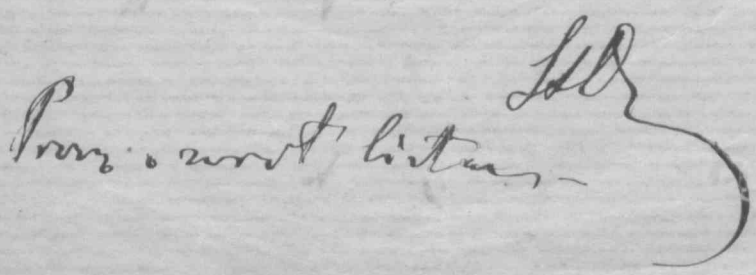 Proszę o zwrot listu. –